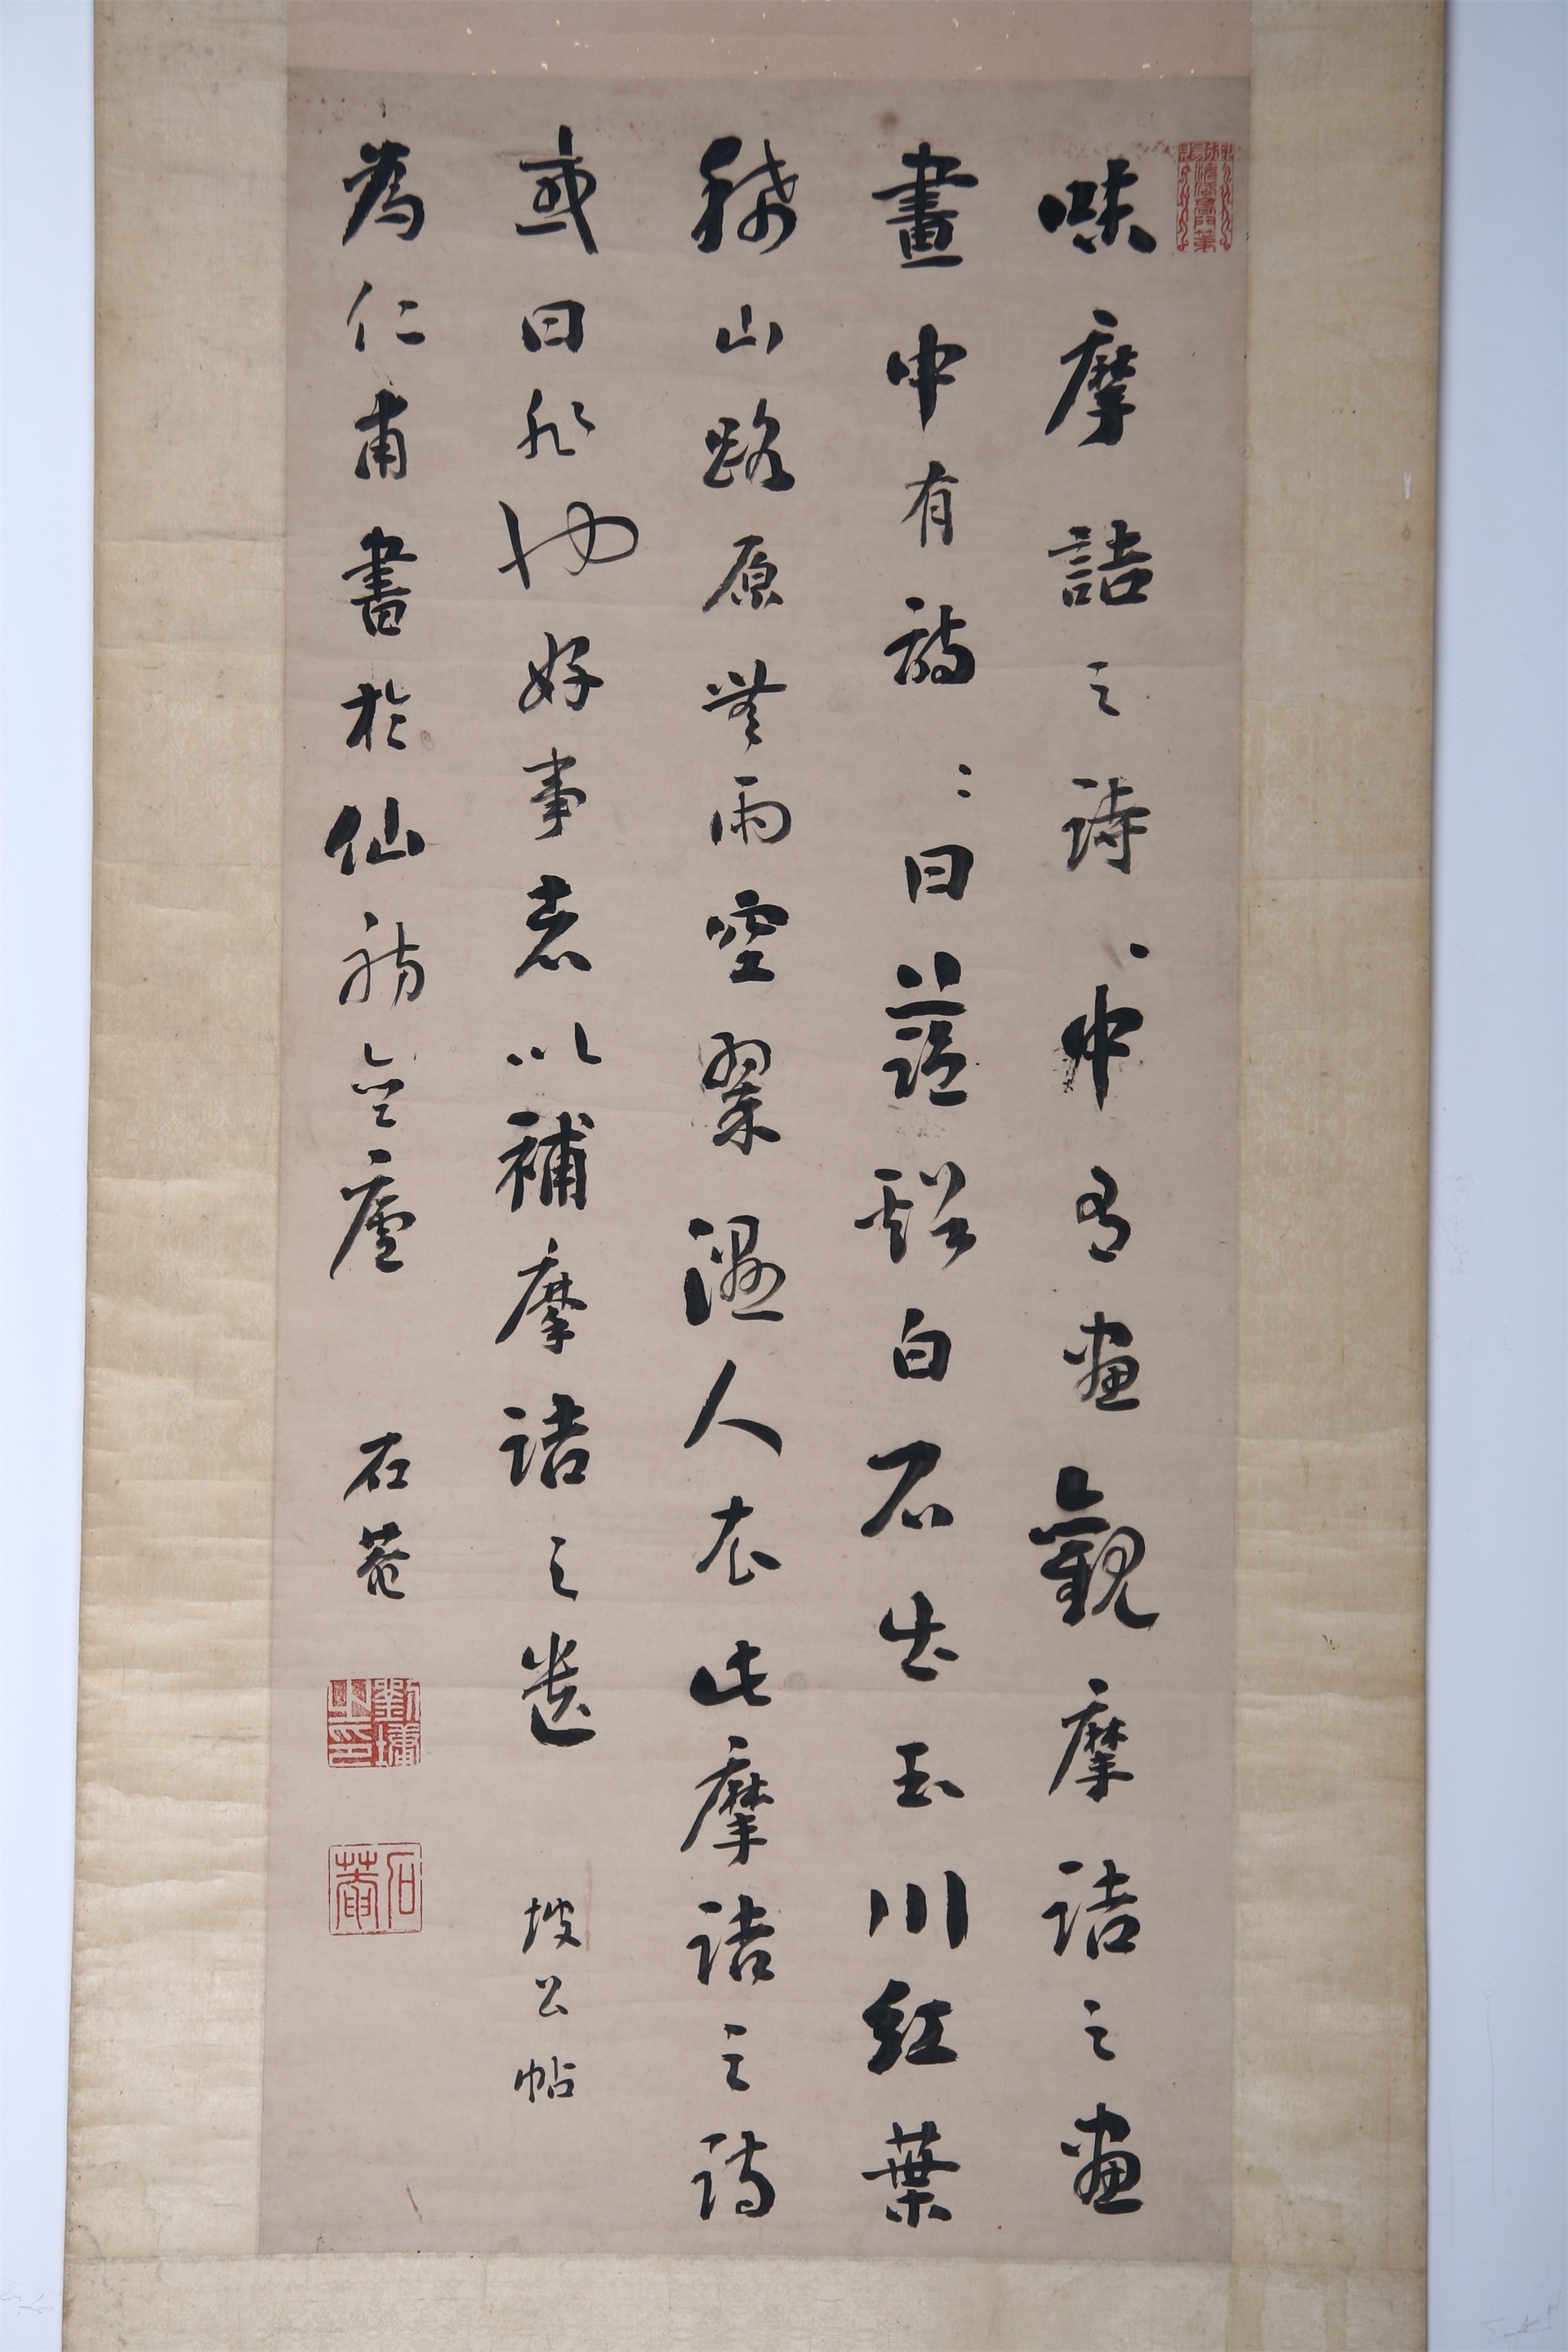 味摩詰之詩、中有畫觀摩詰之畫
畫中有詩〻曰藍谿白石出玉川紅葉
稀山路原無雨空翠濕人衣此摩詰之詩
或曰非也好事者以補摩詰之遺 坡公帖
為仁甫書於仙舫廬 石菴
劉墉之印
石菴